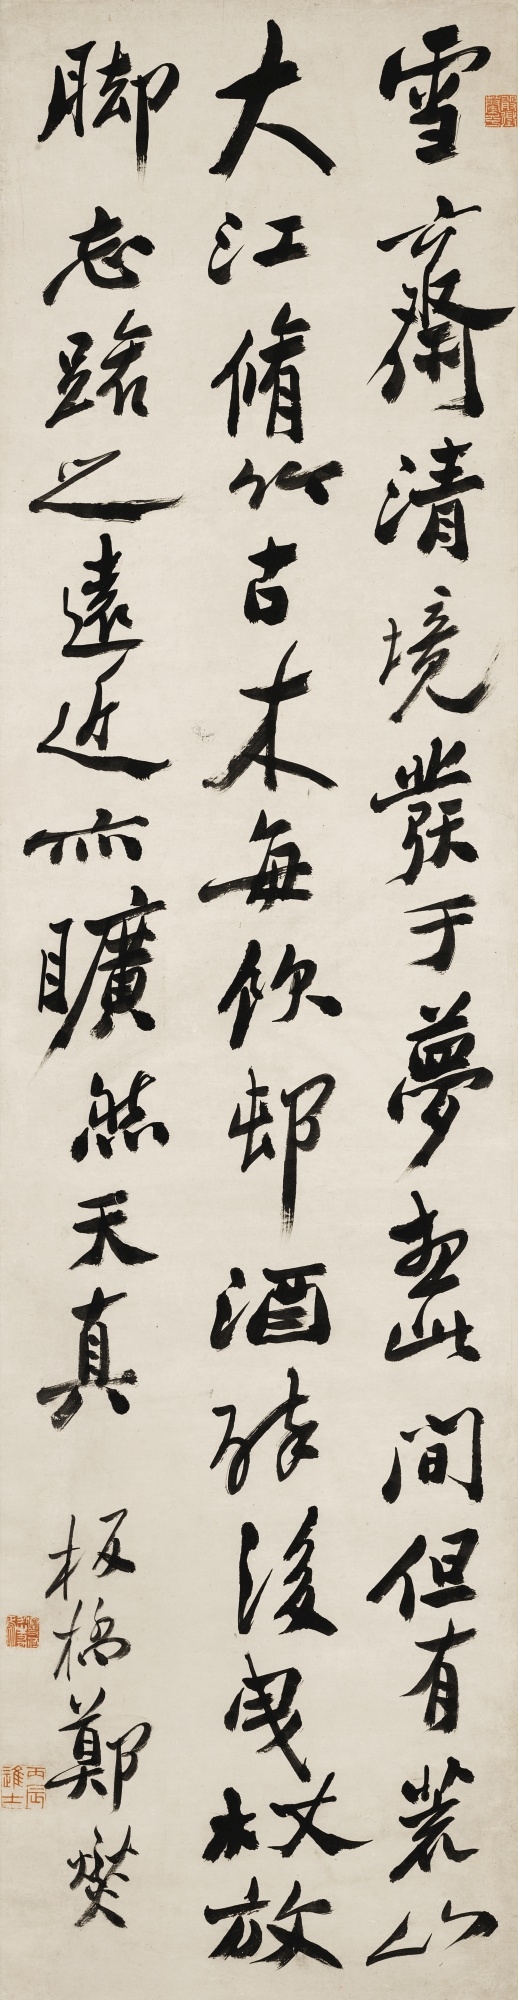 雪齋清境發于夢想此間但有荒山
大江脩竹古木每飲邨酒醉後曳杖放
脚忘路之遠近亦曠然天真
板橋鄭燮
丙辰進士